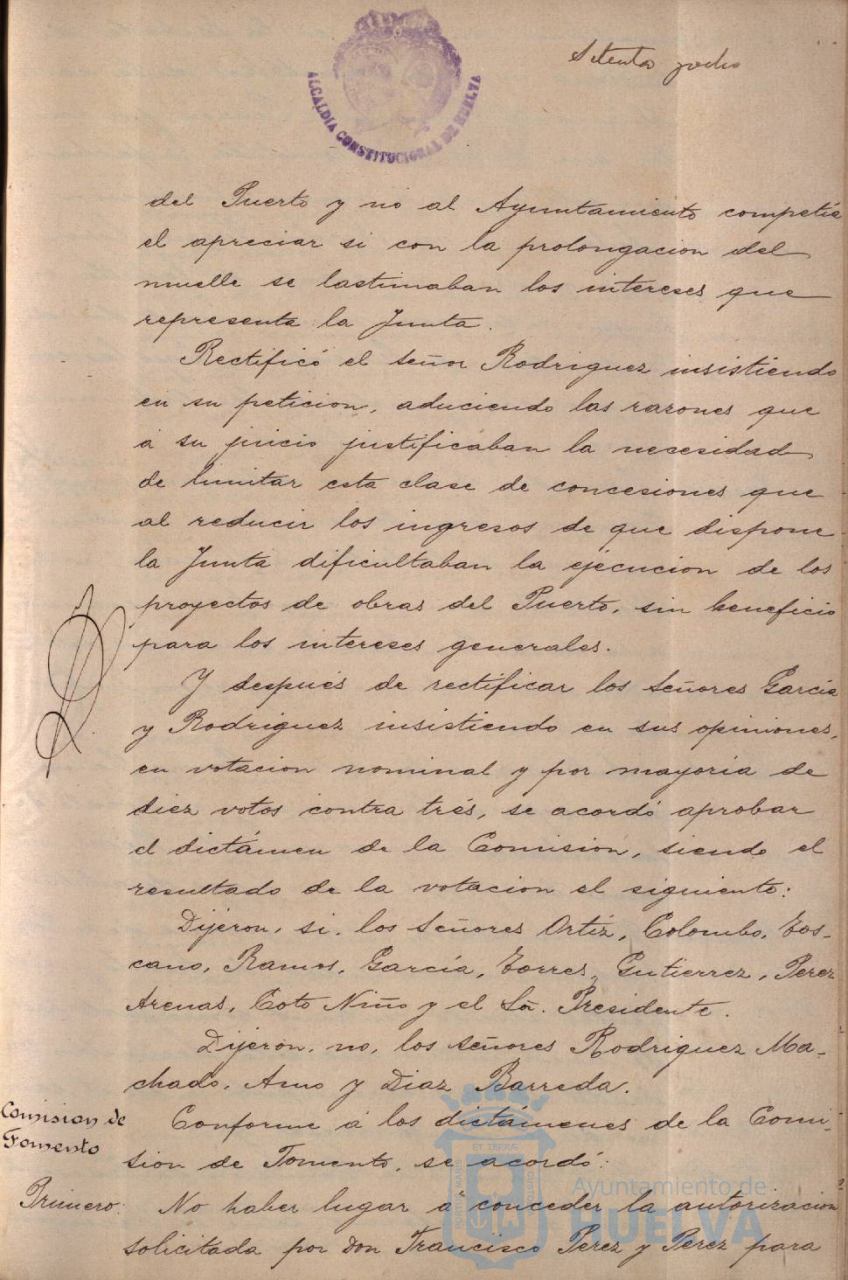 Setenta y ocho
ALCALDIA CONSTITUCIONAL DE HUELVA
del Puerto y no al Ayuntamiento competía
el apreciar si con la prolongacion del
muelle se lastimaban los intereses que
representa la Junta.
Rectificó el señor Rodriguez insistiendo
en su peticion, aduciendo las razones que
á su juicio justificaban la necesidad
de limitar esta clase de concesiones que
al reducir los ingresos de que dispone
la Junta dificultaban la ejecucion de los
proyectos de obras del Puerto, sin beneficio
para los intereses generales.
Y después de rectificar los Señores García
y Rodriguez insistiendo en sus opiniones,
en votacion nominal y por mayoria de
diez votos contra trés, se acordó aprobar
el dictámen de la Comisión, siendo el
resultado de la votacion el siguiente:
Dijeron, si, los Señores Ortíz, Colombo, Tos-
cano, Ramos, García, Torres, Gutierrez, Perez
Arenas, Coto Niño y el Sr. Presidente.
Dijeron, no, los señores Rodriguez Ma-
chado, Amo y Diaz Barreda.
Comision de
Fomento
Conforme á los dictámenes de la Comi-
sion de Fomento, se acordó:
Primero: No haber lugar á conceder la autorizacion
solicitada por Don Francisco Perez y Perez para
Ayuntamiento de
HUELVA